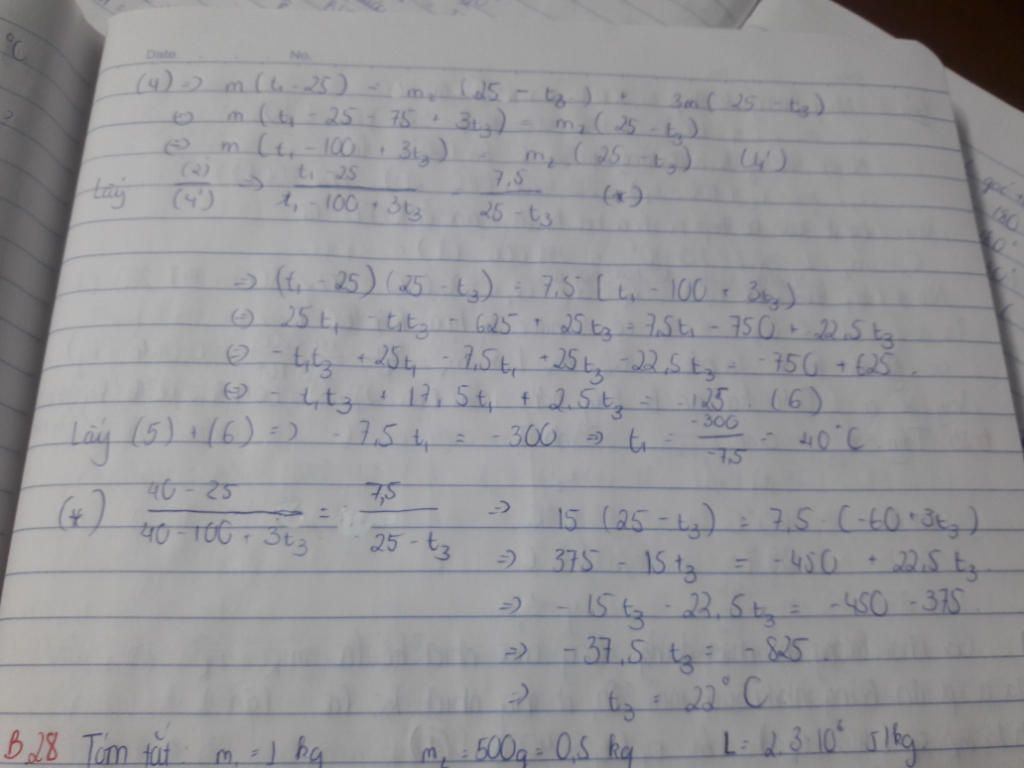 Date No.
(4) => m (t₁ - 25) = m₂ (25 - t₃) + 3m (25 - t₃)
<=> m (t₁ - 25 - 75 + 3t₃) = m₂ (25 - t₃)
<=> m (t₁ - 100 + 3t₃) = m₂ (25 - t₃) (4')
Lấy (2)/(4') => (t₁ - 25)/(t₁ - 100 + 3t₃) = 7,5/(25 - t₃) (*)
=> (t₁ - 25) (25 - t₃) = 7,5 (t₁ - 100 + 3t₃)
<=> 25t₁ - t₁t₃ - 625 + 25t₃ = 7,5t₁ - 750 + 22,5t₃
<=> - t₁t₃ + 25t₁ - 7,5t₁ + 25t₃ - 22,5t₃ = -750 + 625.
<=> - t₁t₃ + 17,5t₁ + 2,5t₃ = -125. (6)
Lấy (5) + (6) => - 7,5 t₁ = -300 => t₁ = -300/-7,5 = 40°C
(*) (40 - 25)/(40 - 100 + 3t₃) = 7,5/(25 - t₃) => 15 (25 - t₃) = 7,5 . (-60 + 3t₃)
=> 375 - 15t₃ = -450 + 22,5t₃
=> - 15t₃ - 22,5t₃ = -450 - 375
=> -37,5 t₃ = -825.
=> t₃ = 22°C
B.28 Tóm tắt: m₁ = 1 kg m₂ = 500g = 0,5 kg L = 2,3.10⁶ J/kg